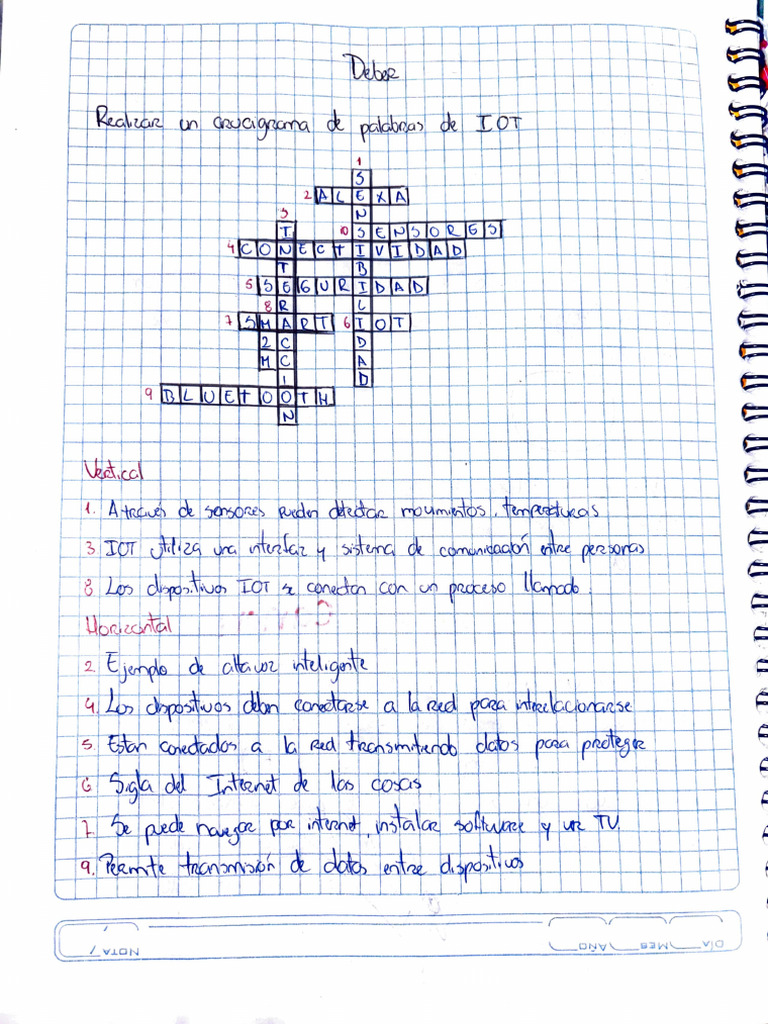 Deber
Realizar un crucigrama de palabras de IOT
1
S
2 ALEXA
3 N
I 10 SENSORES
4 CONECTIVIDAD
T B
5 SEGURIDAD
8 R L
7 SMART 6 IOT
2 C D
M C A
I D
9 BLUETOOTH
N
Vertical
1. A través de sensores pueden detectar movimientos, temperaturas
3 IOT utiliza una interfaz y sistema de comunicación entre personas
8 Los dispositivos IOT se conectan con un proceso llamado.
Horizontal
2. Ejemplo de altavoz inteligente
4. Los dispositivos deben conectarse a la red para interrelacionarse
5. Estan conectados a la red transmitiendo datos para proteger
6 Sigla del Internet de las cosas
7. Se puede navegar por internet, instalar software y ver TV.
9. Permite transmisión de datos entre dispositivos
NOTA / DÍA MES AÑO